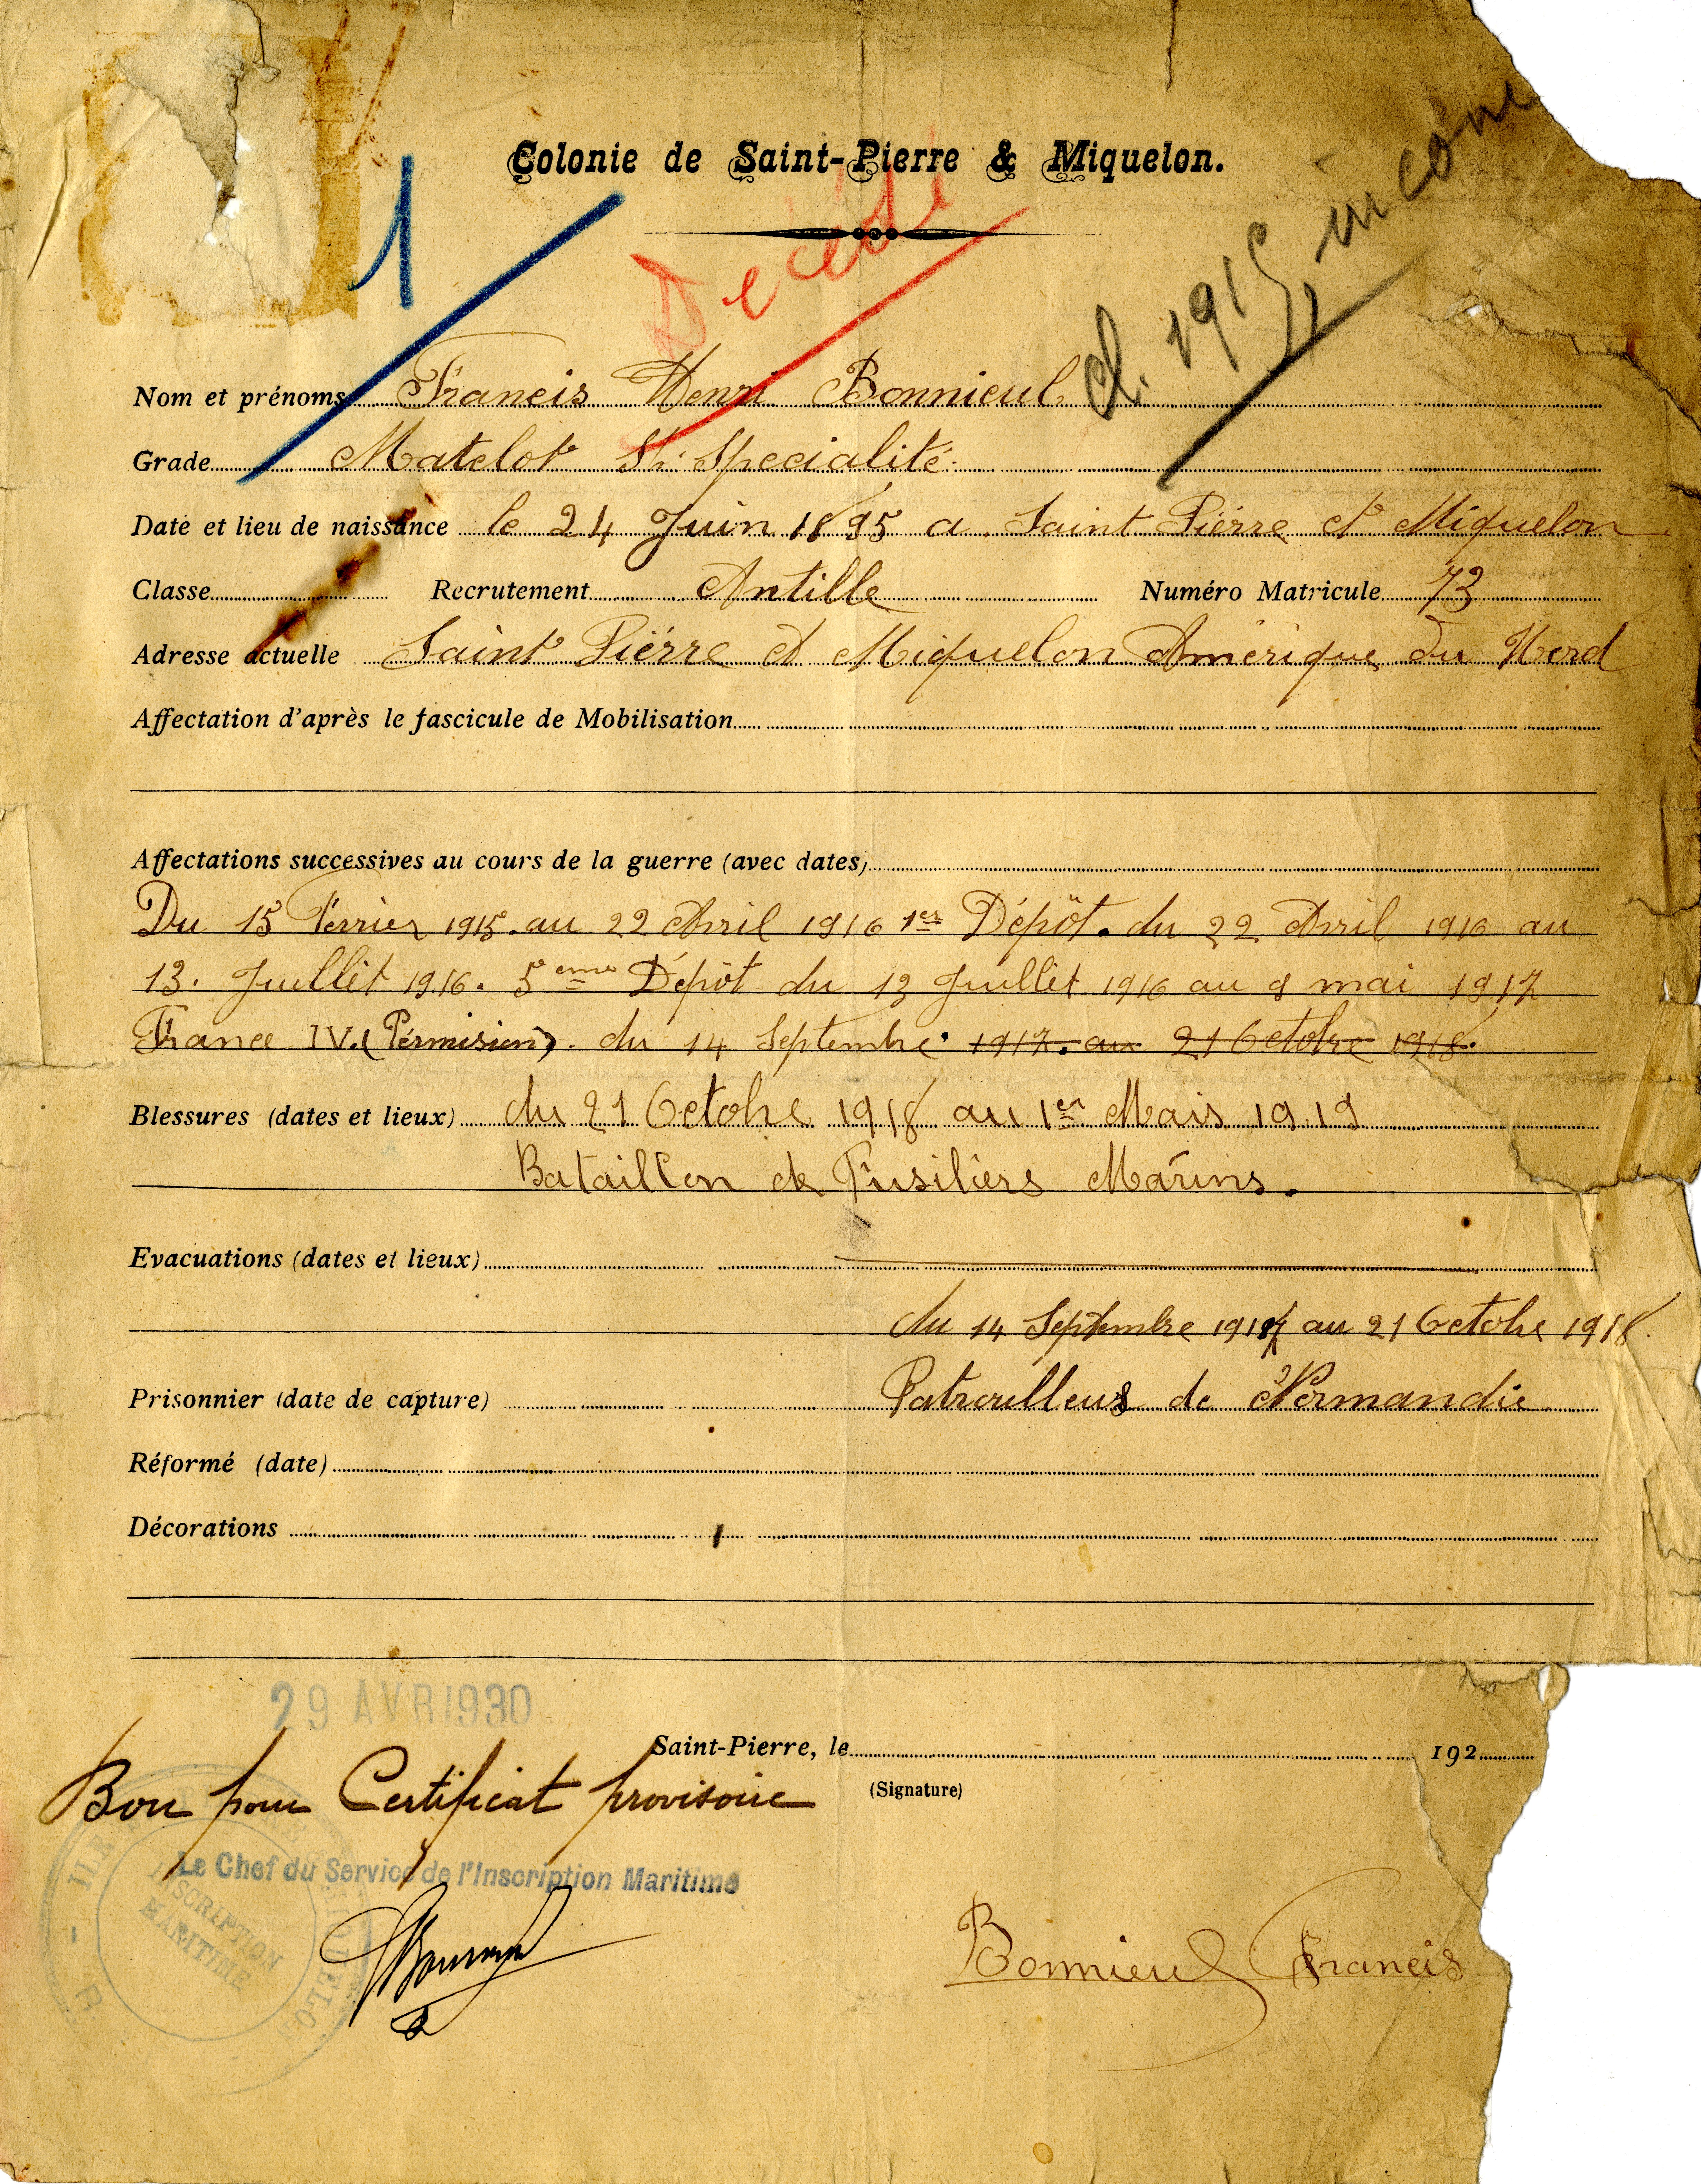 Colonie de Saint-Pierre & Miquelon.
1
Décédé
cl. 1915
Nom et prénoms Francis Henri Bonnieul
Grade Matelot St. Spécialité.
Date et lieu de naissance le 24 Juin 1895 a Saint Pierre et Miquelon
Classe Recrutement Antille Numéro Matricule 73
Adresse actuelle Saint Piérre et Miquelon Amérique du Nord
Affectation d'après le fascicule de Mobilisation
Affectations successives au cours de la guerre (avec dates)
Du 15 Février 1915. au 22 Avril 1916 1er Dépôt. du 22 Avril 1916 au
13. Juillet 1916. 5eme Dépôt du 13 Juillet 1916 au 8 mai 1917
France IV. (Pérmision). du 14 Septembre 1917. au 21 Octobre 1918.
Blessures (dates et lieux) du 21 Octobre 1918 au 1er Mars 1919
Bataillon de Fusiliers Marins.
Evacuations (dates et lieux)
du 14 Septembre 1917 au 21 Octobre 1918.
Prisonnier (date de capture) Patrouilleurs de Normandie
Réformé (date)
Décorations
29 AVR 1930
Saint-Pierre, le 192
Bon pour Certificat provisoire
(Signature)
Le Chef du Service de l'Inscription Maritime
INSCRIPTION
MARITIME
Bonnieul Francis